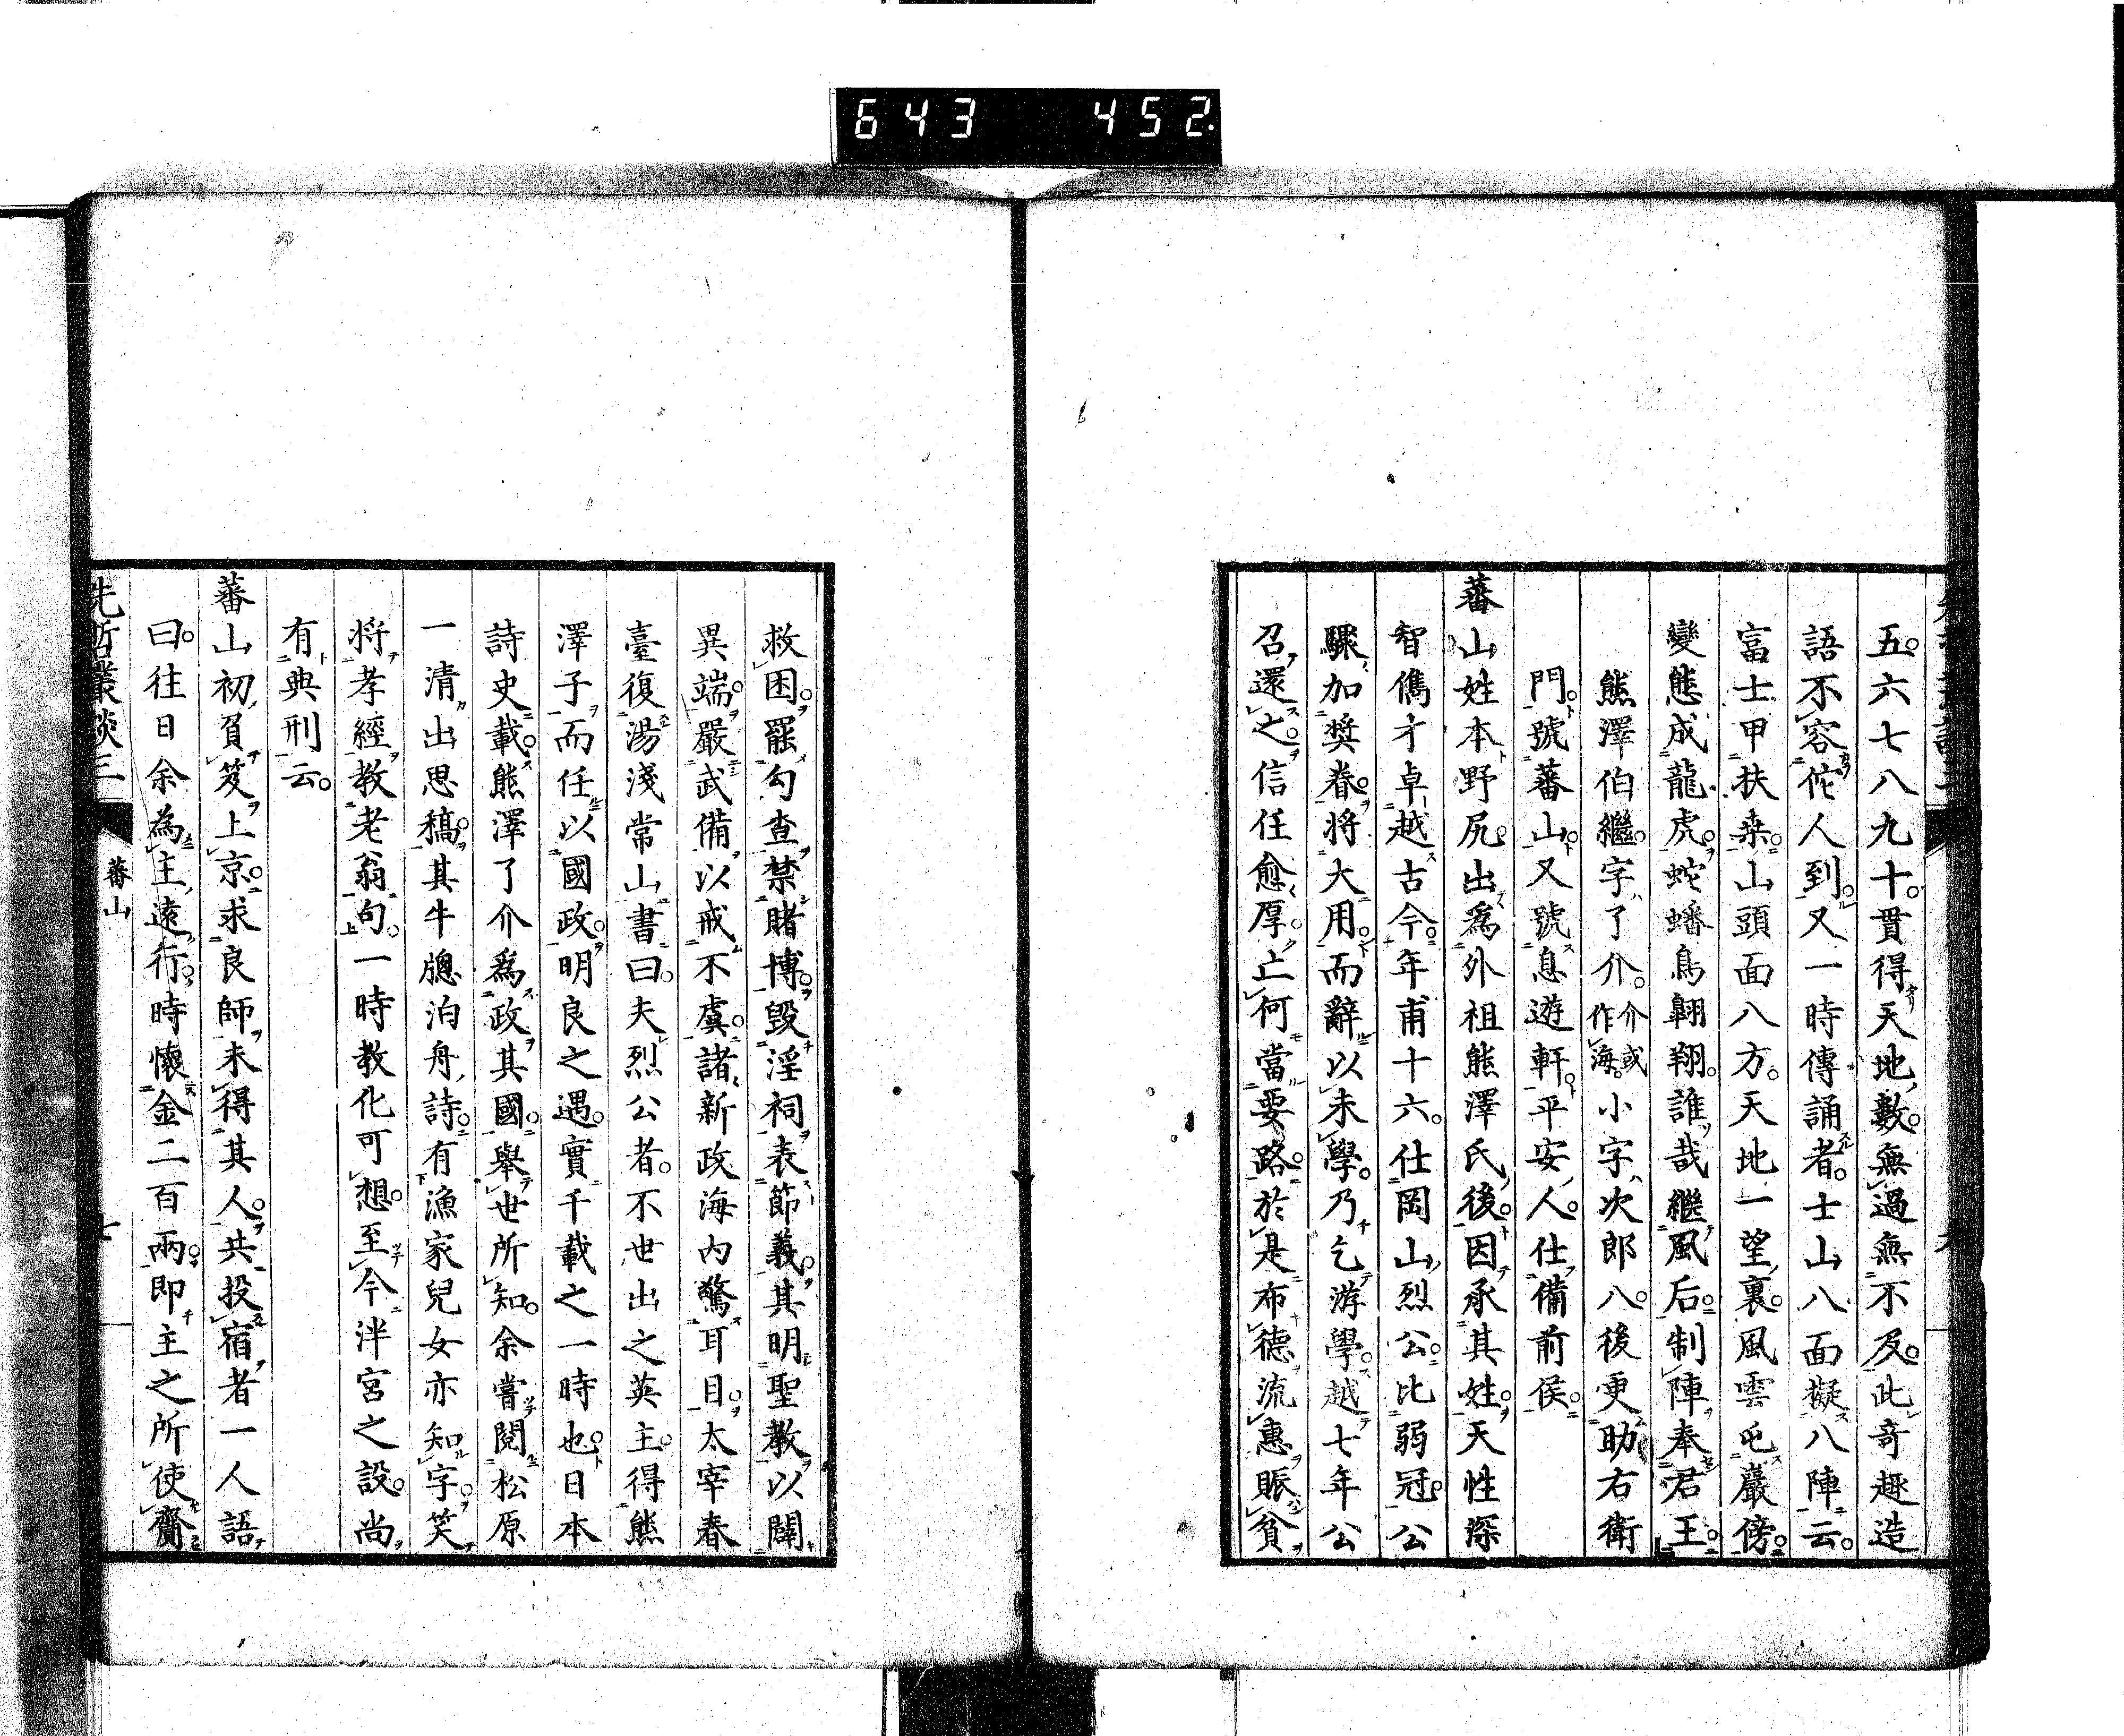 643 452
五六七八九十。貫得天地數。無過無不及。此奇趣造
語不容佗人到。又一時傳誦者。士山八面擬八陣云。
富士甲扶桒。山頭面八方。天地一望裏。風雲屯巖傍。
變態成龍虎。蛇蟠鳥翺翔。誰哉繼風后。制陣奉君王。
熊澤伯繼。字了介。介或作海。小字次郎八。後更助右衛
門。號蕃山。又號息遊軒。平安人。仕備前侯。
蕃山姓本野尻。出爲外祖熊澤氏後。因承其姓。天性深
智儁才卓越古今。年甫十六。仕岡山烈公。比弱冠。公
驟加奬眷。將大用。而辭以未學。乃乞游學。越七年。公
召還之。信任愈厚。亡何當要路。於是布德流惠。賑貧
救困。罷勾查。禁賭博。毀淫祠。表節義。其明聖教以闢
異端。嚴武備以戒不虞。諸新政海内驚耳目。太宰春
臺復湯淺常山書曰。夫烈公者。不世出之英主。得熊
澤子而任以國政。明良之遇。實千載之一時也。日本
詩史載。熊澤了介爲政其國。舉世所知。余嘗閱松原
一清出思稿。其牛牕泊舟詩。有漁家兒女亦知字。笑
將孝經教老翁句。一時教化可想。至今泮宮之設。尚
有典刑云。
蕃山初負笈上京。求良師未得其人。共投宿者一人語
曰。往日余為主遠行。時懷金二百兩。即主之所使齎
先哲叢談三
蕃山
七